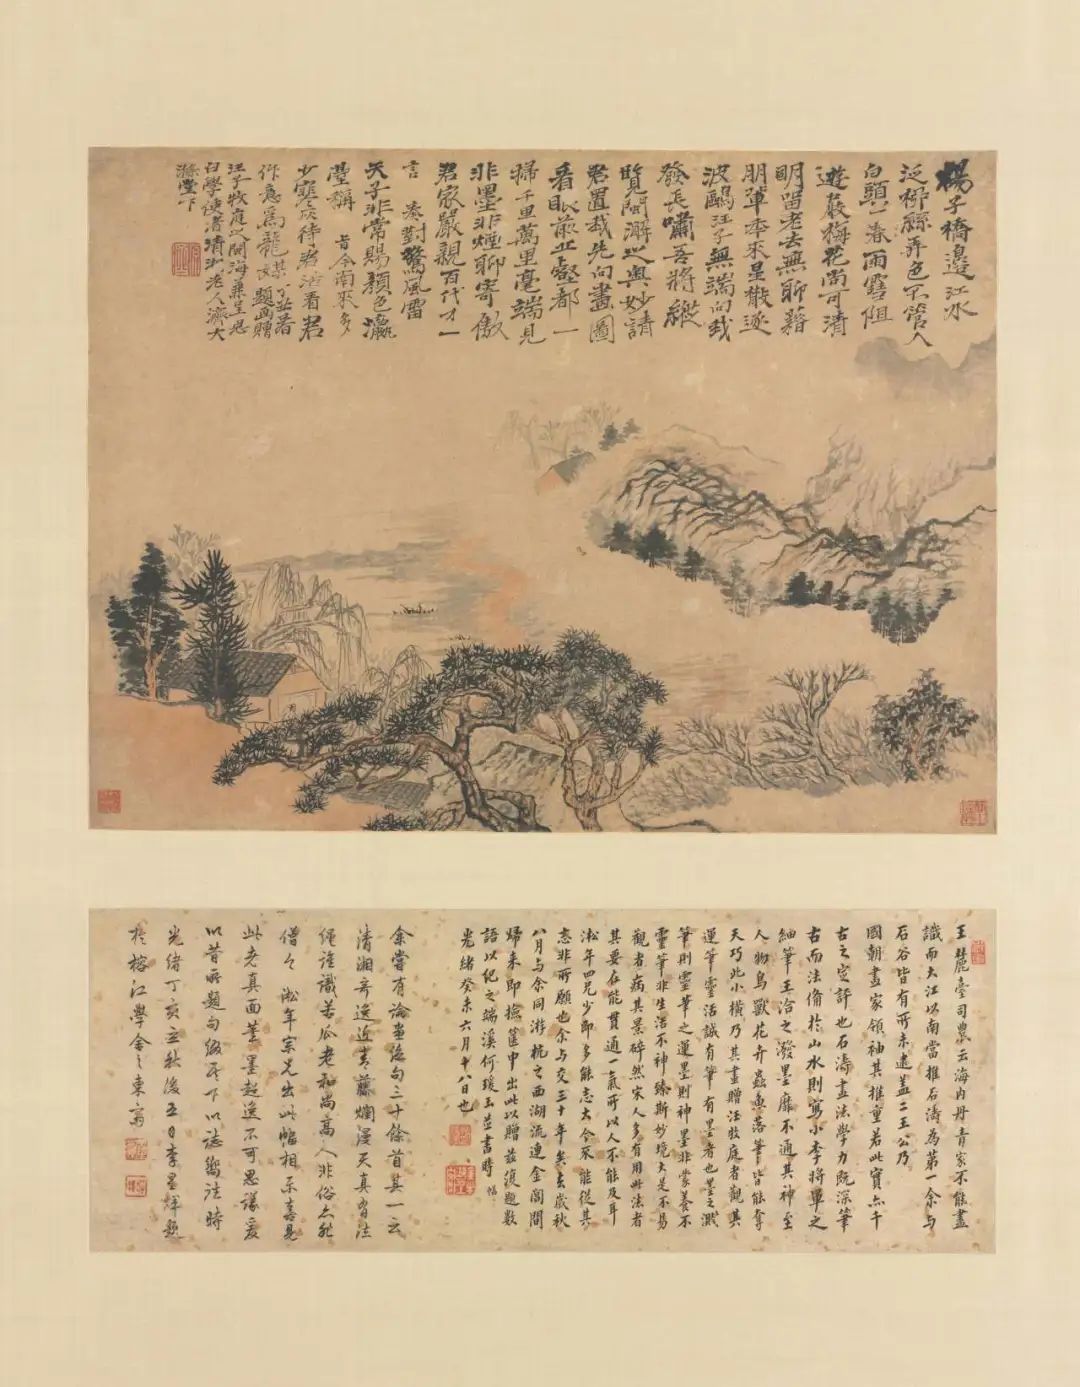 楊子橋邊江水
泛柳絲弄色不管人
白頭一春雨雪阻
遊蒙梅花尚可清
明留老去無聊藉
朋輩本來星散逐
波鷗汪子無端向我
發長嘯吾將縱
覽閩海之奧妙請
君置我先向畫圖
看眼前止壑都一
掃千里萬里毫端見
非墨非煙聊寄傲
君家嚴親百代才一
言 奏對驚風雷
天子非常賜顏色瀛
瀅稱 昔今南來多
少寒灰待君活看君
作意為龍媒 題畫贈
汪子牧庭之閩海兼呈思
白學使者清湘老人濟大
滌堂下
王麓臺司農云海內丹青家不能盡
識而大江以南當推石濤為第一余與
石谷皆有所未逮蓋二王公乃
國朝畫家領袖其推重若此實亦千
古之定評也石濤畫法學力既深筆
古而法備於山水則寫小李將軍之
細筆王洽之潑墨靡不通其神至
人物鳥獸花卉蟲魚落筆皆能奪
天巧此小橫乃其畫贈汪牧庭者觀其
運筆靈活誠有筆有墨者也墨之濺
筆則靈筆之運墨則神墨非蒙養不
靈筆非生活不神臻斯妙境大是不易
觀者病其景碎然宋人多有用此法者
其要在能貫通一氣所以人不能及耳
淞年四兄少即多能志大合 能從其
志非所願也余與交三十年矣去歲秋
八月與余同游杭之西湖流連金閶間
歸來即撿篋中出此以贈茲復題數
語以紀之端溪何瑗玉並書時
光緒癸未六月十八日也
余嘗有論畫絕句三十餘首其一云
清湘奇逸近青藤爛漫天真有法
繩誰識苦瓜老和尚高人非俗亦非
僧 淞年宗兄出此幅相示喜見
此老真面筆墨超逸不可思議爰
以昔所題句綴於下以誌鄉往時
光緒丁亥立秋後五日李星輝題
於榕江學舍之東